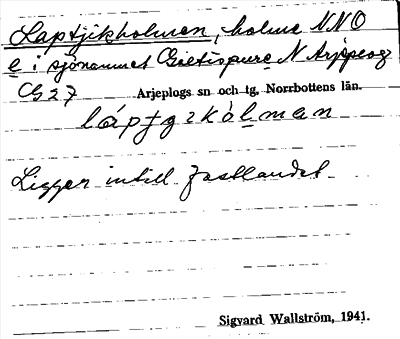 Laptjikholmen, holme NNO
e i sjönamnet Gietispure N Arjeplog
CG 27 Arjeplogs sn och tg, Norrbottens län.
Ligger intill fastlandet.
Sigvard Wallström, 1941.